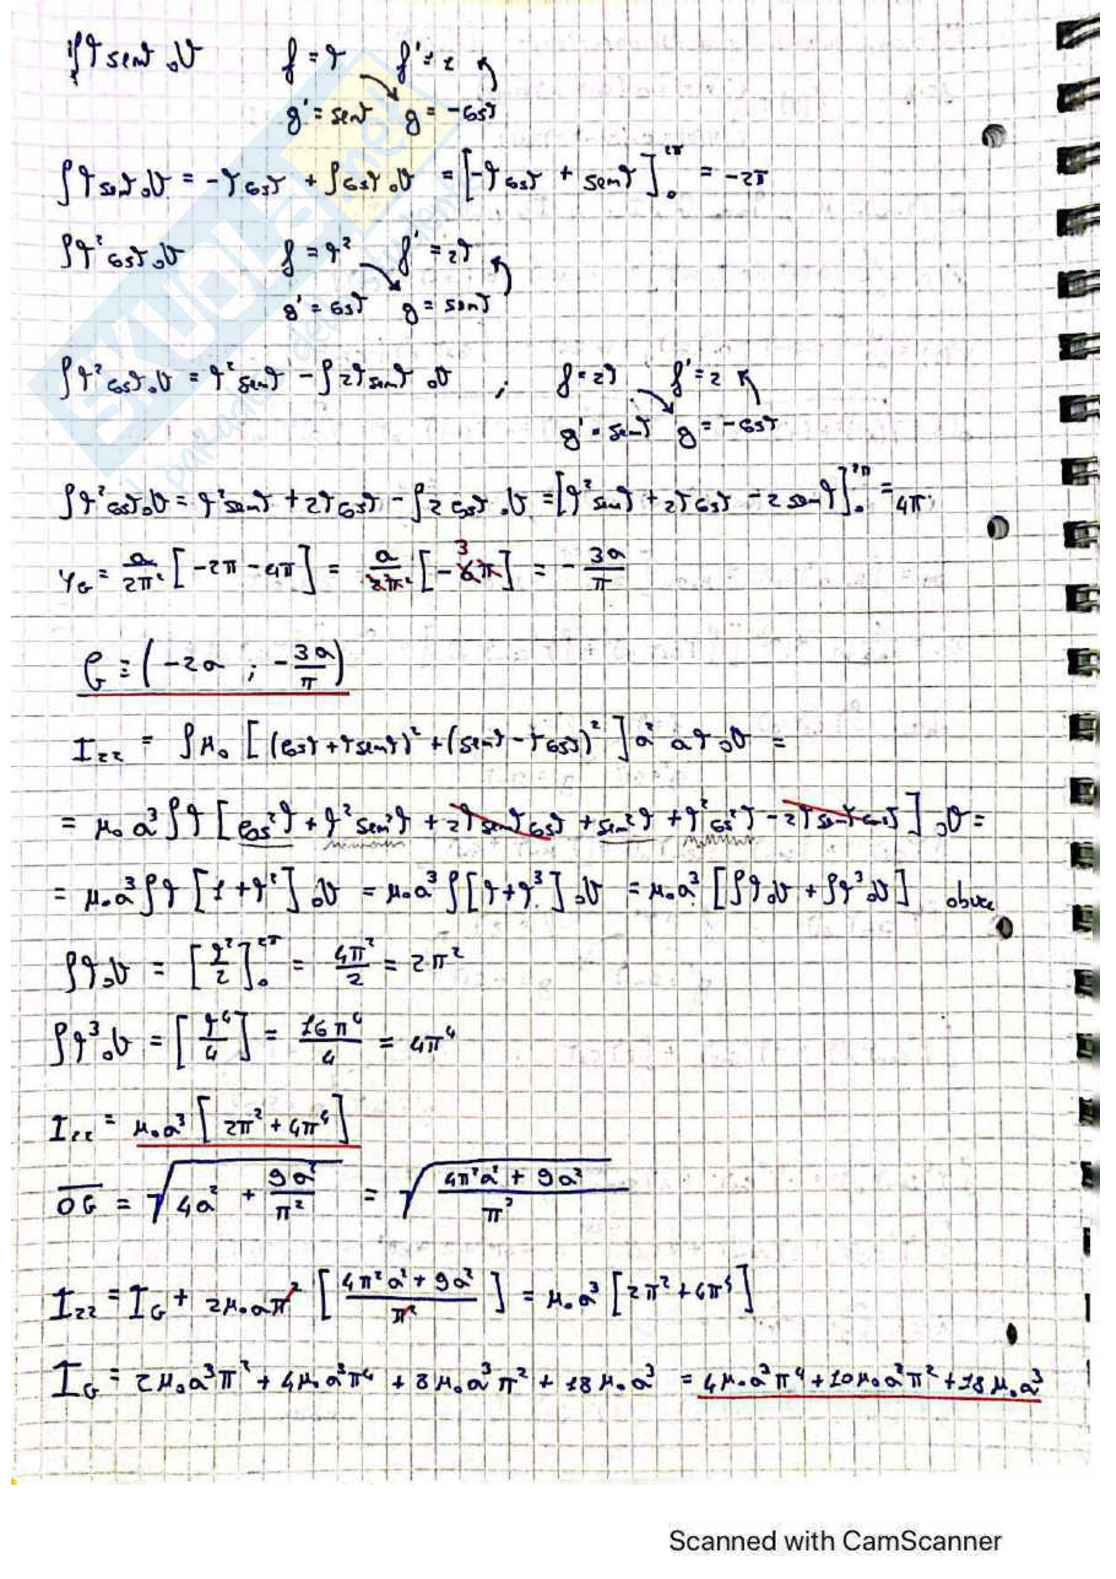 if ϑ senϑ dϑ f = ϑ f' = 1
g' = senϑ g = -cosϑ
∫ϑ senϑ dϑ = -ϑcosϑ + ∫cosϑ dϑ = [-ϑcosϑ + senϑ]₀^2π = -2π
∫ϑ² cosϑ dϑ f = ϑ² f' = 2ϑ
g' = cosϑ g = senϑ
∫ϑ² cosϑ dϑ = ϑ² senϑ - ∫2ϑ senϑ dϑ ; f = 2ϑ f' = 2
g' = senϑ g = -cosϑ
∫ϑ² cosϑ dϑ = ϑ² senϑ + 2ϑcosϑ - ∫2 cosϑ dϑ = [ϑ² senϑ + 2ϑcosϑ - 2 senϑ]₀^2π = 4π
Y_G = a/2π² [-2π - 4π] = a/2π² [-6π] 3 = - 3a/π
G ≡ (-2a ; - 3a/π)
I_zz = ∫μ₀ [(cosϑ + ϑsenϑ)² + (senϑ - ϑcosϑ)²] a² aϑ dϑ =
= μ₀ a³ ∫ϑ [cos²ϑ + ϑ² sen²ϑ + 2ϑ senϑ cosϑ + sen²ϑ + ϑ² cos²ϑ - 2ϑ senϑ cosϑ] dϑ =
= μ₀a³ ∫ϑ [1 + ϑ²] dϑ = μ₀a³ ∫[ϑ + ϑ³] dϑ = μ₀a³ [∫ϑ dϑ + ∫ϑ³ dϑ]
∫ϑ dϑ = [ϑ²/2]₀^2π = 4π²/2 = 2π²
∫ϑ³ dϑ = [ϑ⁴/4] = 16π⁴/4 = 4π⁴
I_zz = μ₀a³ [2π² + 4π⁴]
OG = √(4a² + 9a²/π²) = √((4π²a² + 9a²)/π²)
I_zz = I_G + 2μ₀aπ² [(4π²a² + 9a²)/π²] = μ₀a³ [2π² + 4π⁴]
I_G = 2μ₀a³π² + 4μ₀a³π⁴ + 8μ₀a³π² + 18μ₀a³ = 4μ₀a³π⁴ + 10μ₀a³π² + 18μ₀a³
Scanned with CamScanner